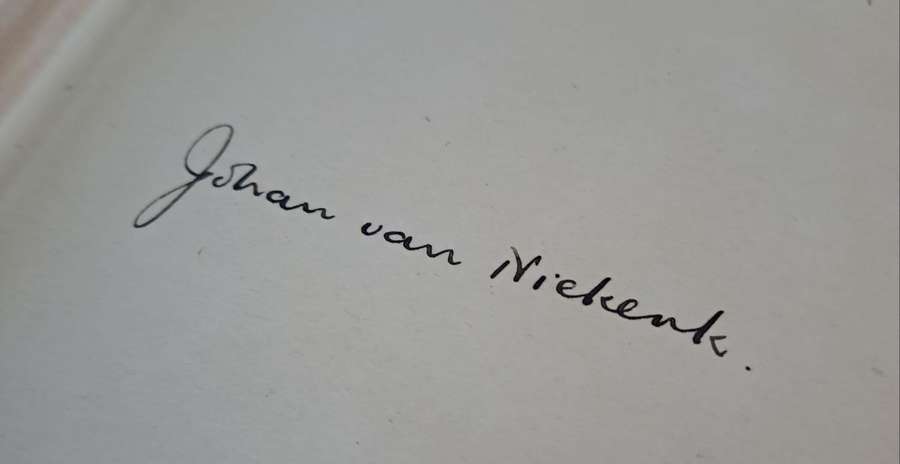 Johan van Niekerk.